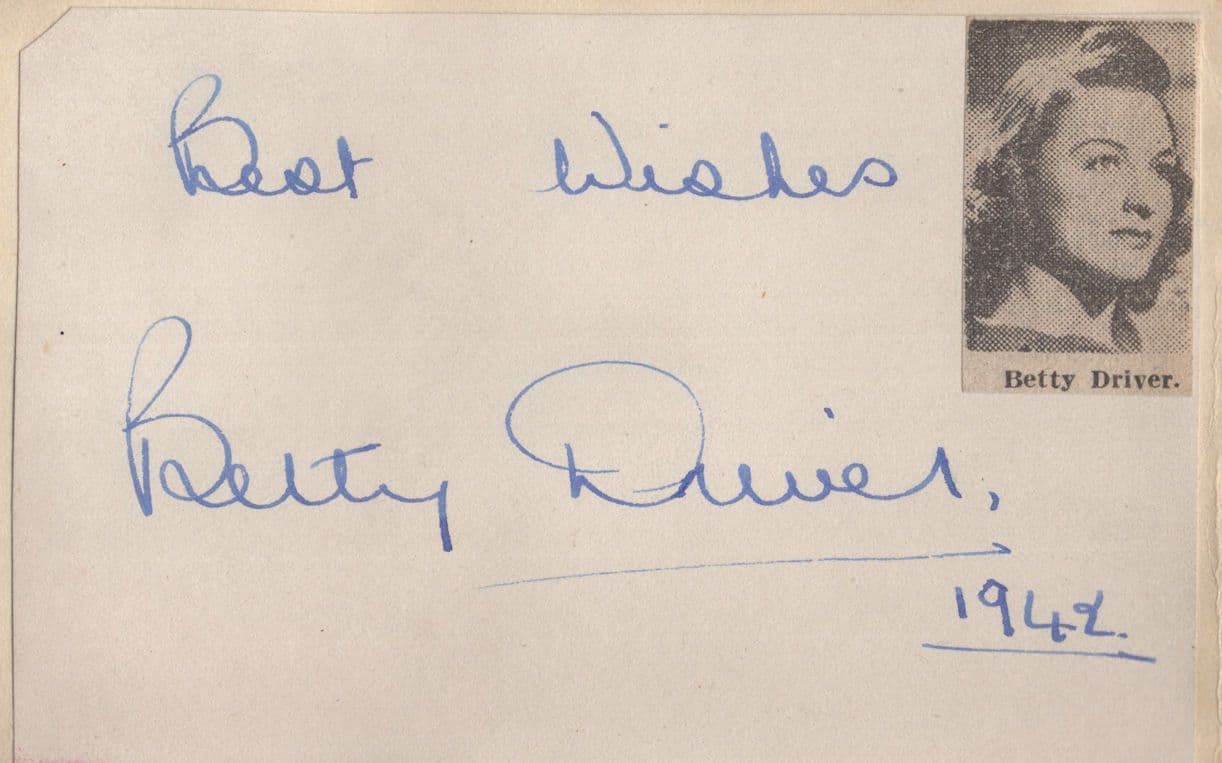 Best Wishes
Betty Driver.
Betty Driver,
1942.